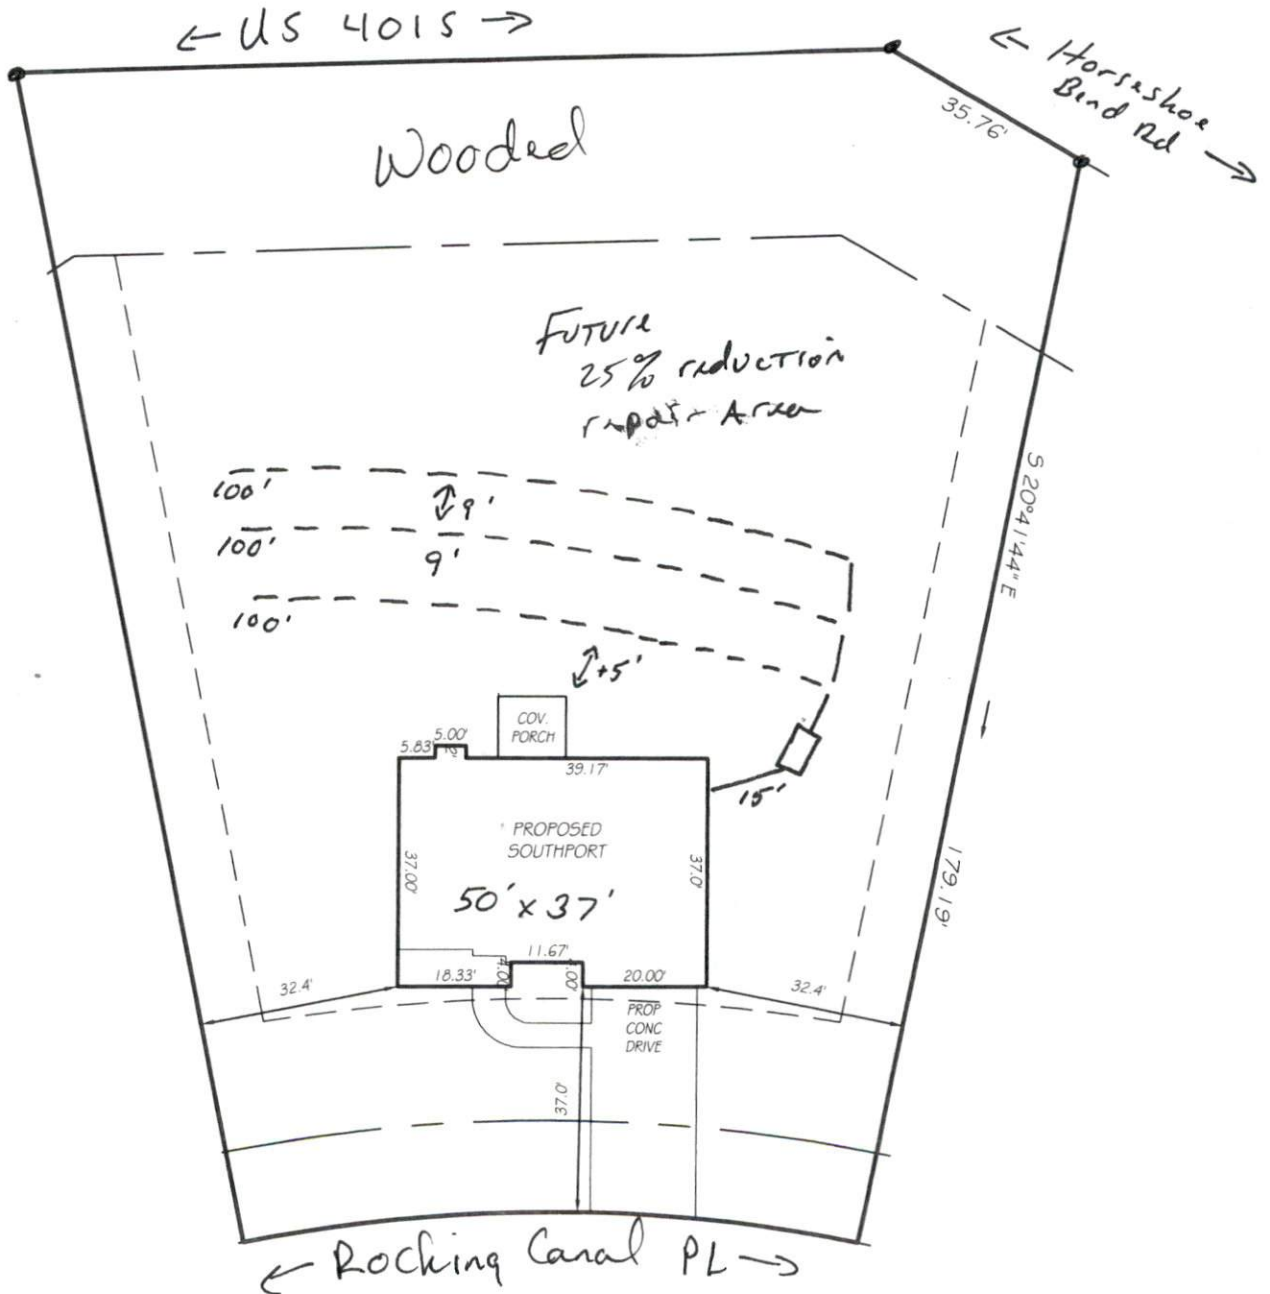 ← US 401S →
← Horseshoe
Bend Rd →
35.76'
Wooded
Future
25% reduction
repair Area
100'
9'
100'
9'
100'
+5'
S 20°41'44" E
179.19'
COV.
PORCH
5.00'
5.83'
39.17'
15'
PROPOSED
SOUTHPORT
50' x 37'
37.00'
37.0'
11.67'
18.33'
4.00'
20.00'
32.4'
32.4'
PROP
CONC
DRIVE
37.0'
← Rocking Canal PL →